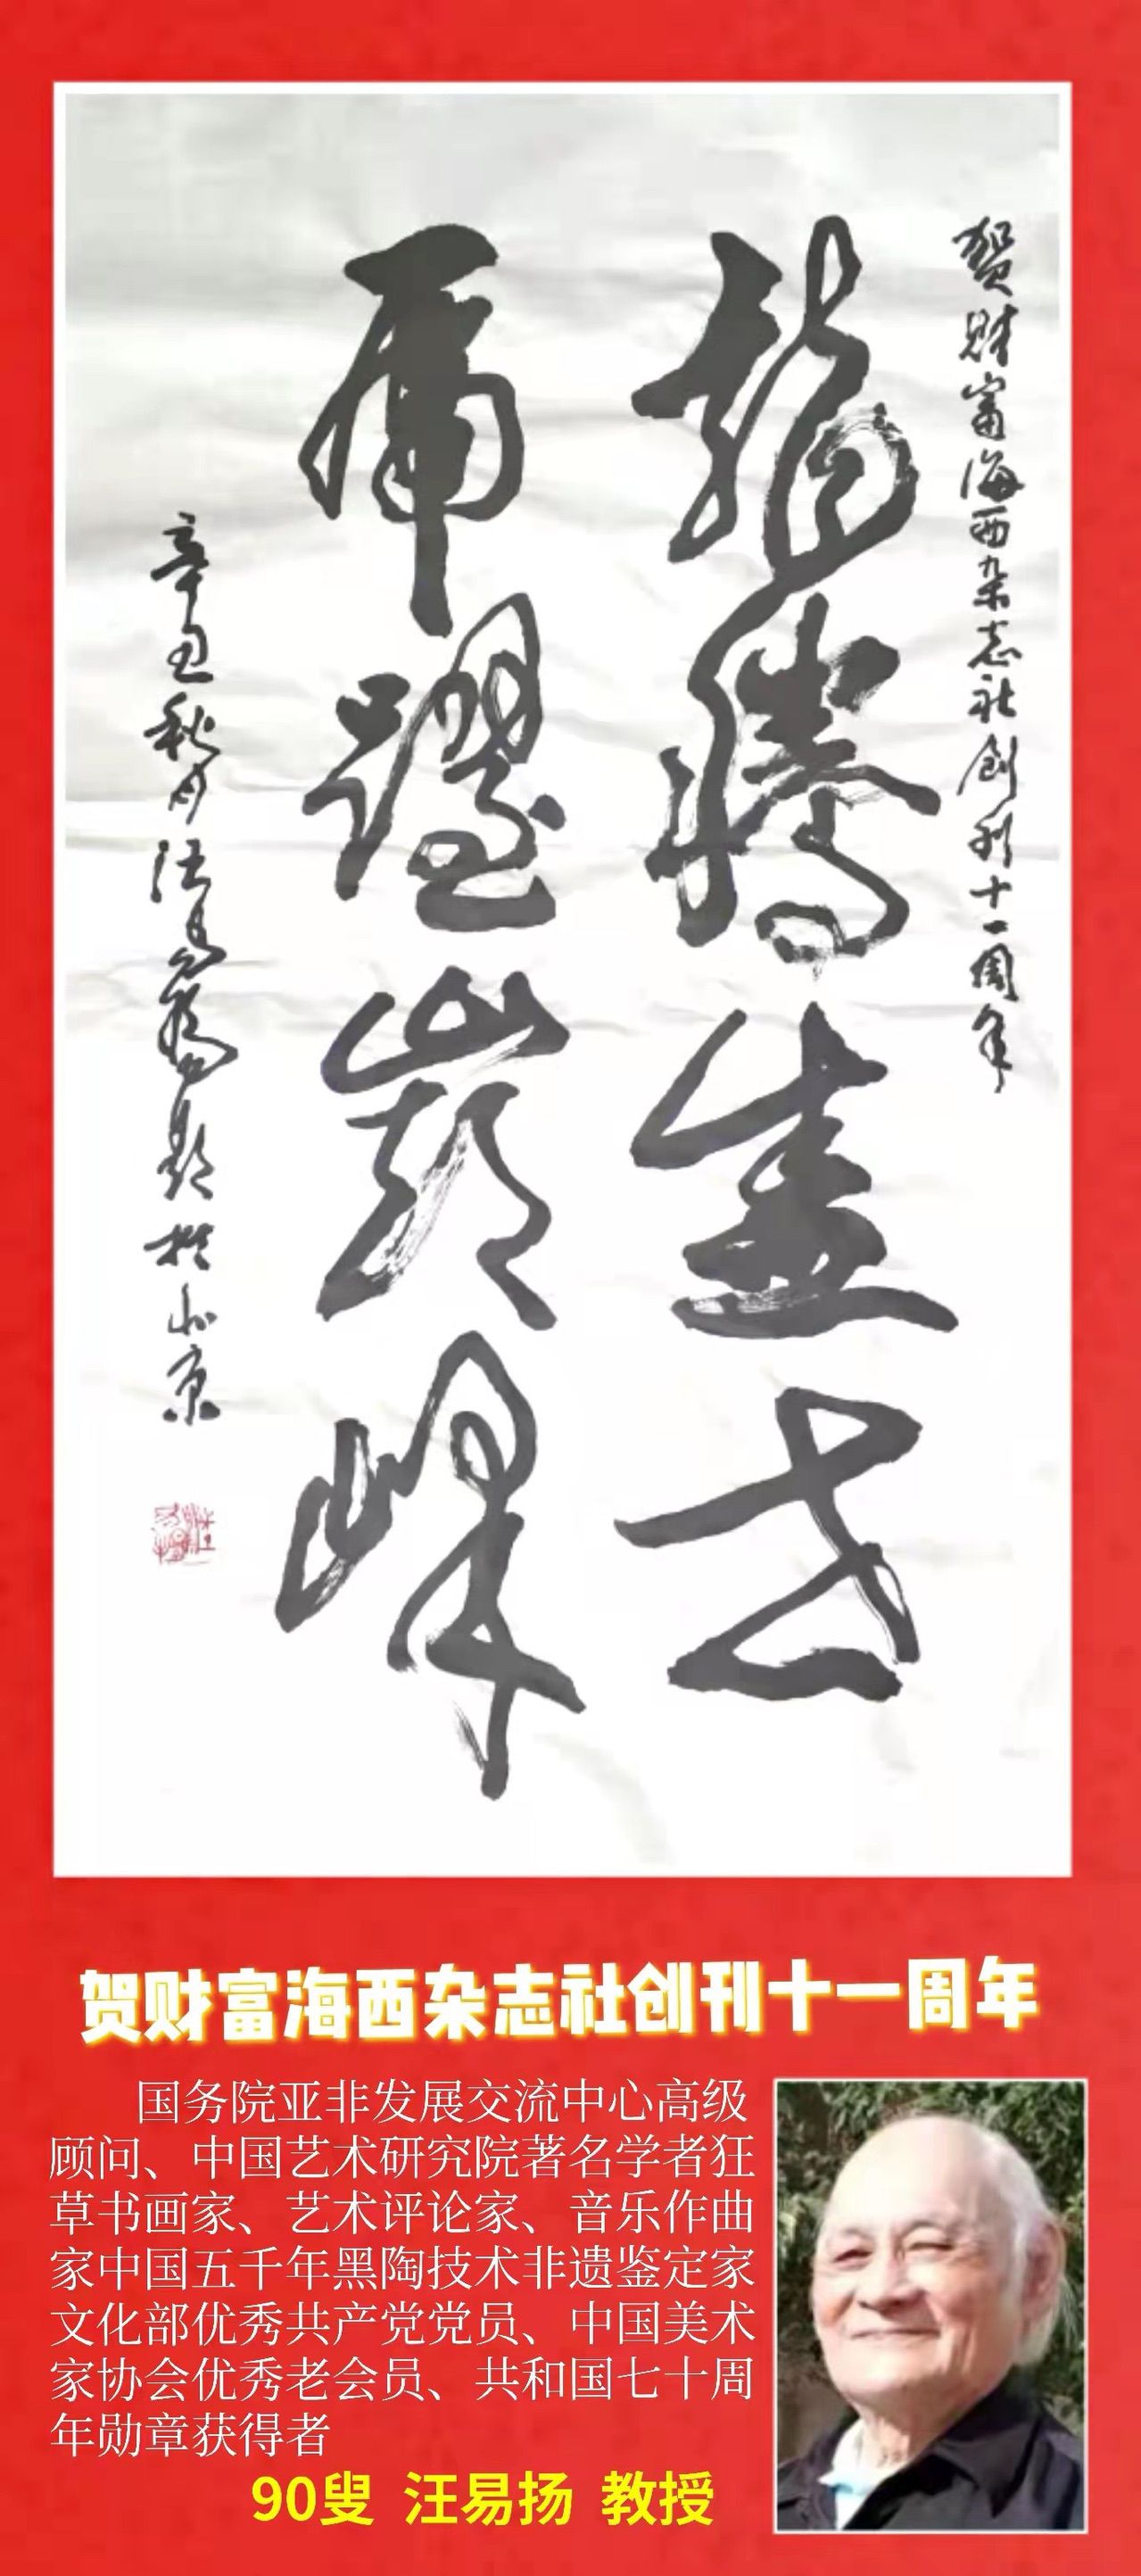 贺财富海西杂志社创刊十一周年
龙腾盛世
虎跃巅峰
辛丑秋月汪易扬题于北京
贺财富海西杂志社创刊十一周年
国务院亚非发展交流中心高级
顾问、中国艺术研究院著名学者狂
草书画家、艺术评论家、音乐作曲
家中国五千年黑陶技术非遗鉴定家
文化部优秀共产党党员、中国美术
家协会优秀老会员、共和国七十周
年勋章获得者
90叟 汪易扬 教授